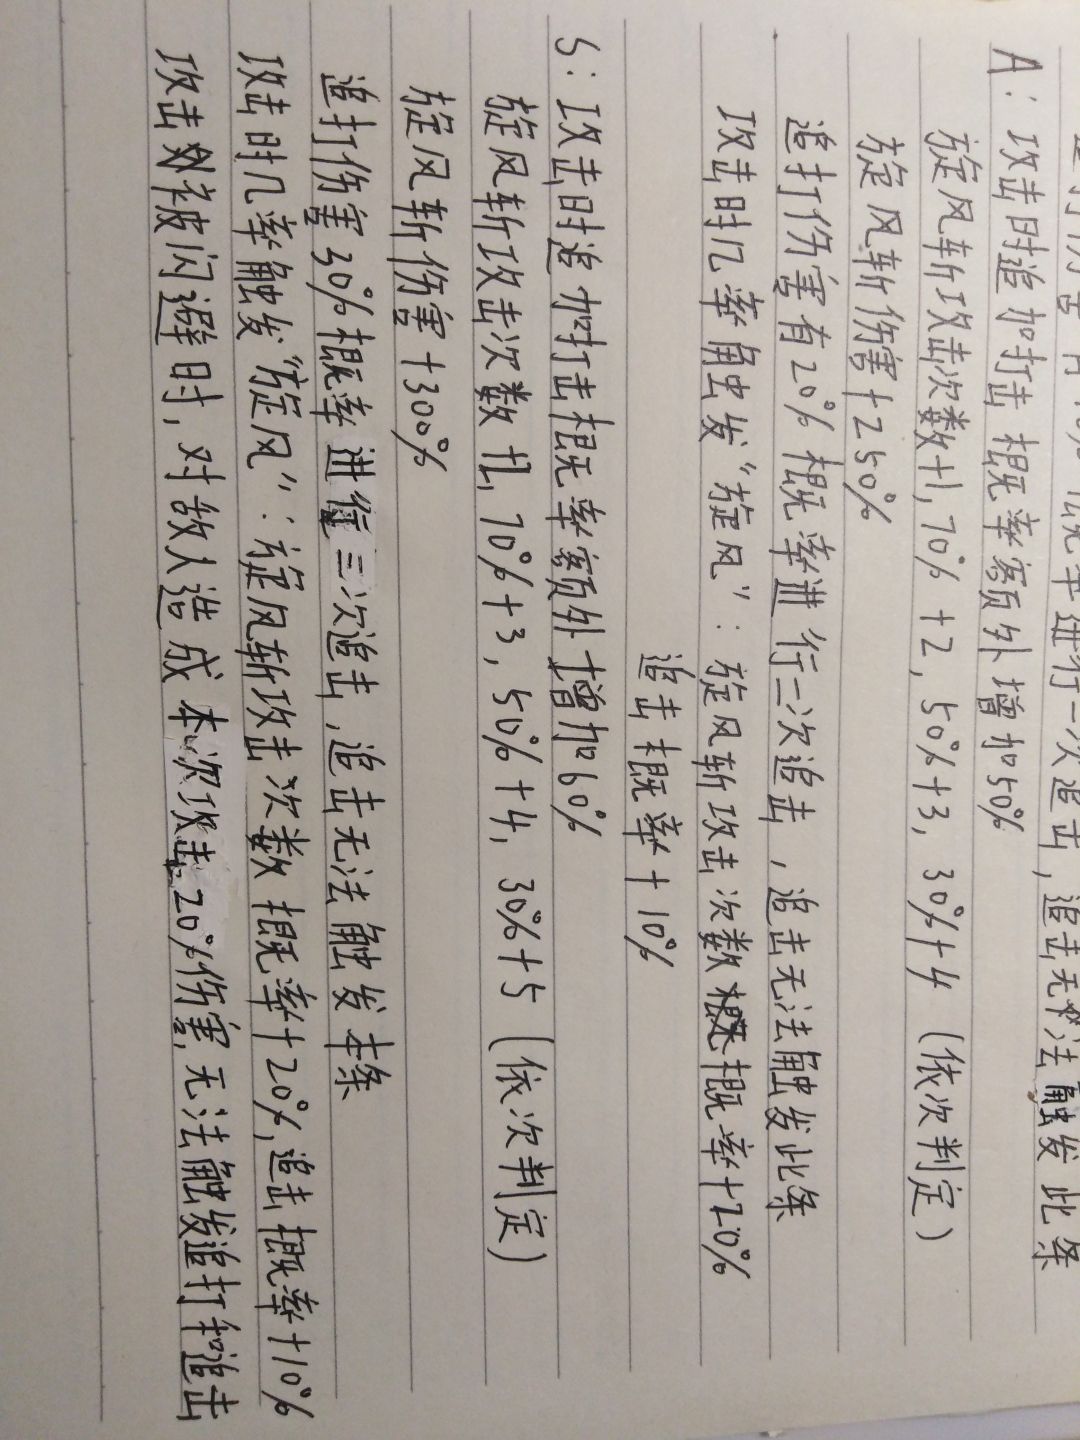 进行一次追击,追击无法触发此条
A:攻击时追加打击概率额外增加50%
旋风斩攻击次数+1,70%+2,50%+3,30%+4(依次判定)
旋风斩伤害+250%
追打伤害有20%概率进行二次追击,追击无法触发此条
攻击时几率触发“旋风”:旋风斩攻击次数概率+20%
追击概率+10%
S:攻击时追加打击概率额外增加60%
旋风斩攻击次数+2,70%+3,50%+4,30%+5(依次判定)
旋风斩伤害+300%
追打伤害30%概率进行三次追击,追击无法触发本条
攻击时几率触发“旋风”:旋风斩攻击次数概率+20%,追击概率+10%
攻击被闪避时,对敌人造成本次攻击20%伤害,无法触发追打和追击